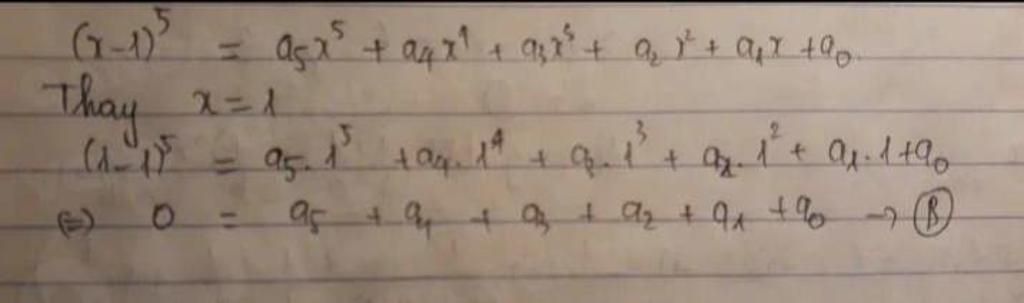 (x-1)⁵ = a₅x⁵ + a₄x⁴ + a₃x³ + a₂x² + a₁x + a₀
Thay x = 1
(1-1)⁵ = a₅.1⁵ + a₄.1⁴ + a₃.1³ + a₂.1² + a₁.1 + a₀
⇔ 0 = a₅ + a₄ + a₃ + a₂ + a₁ + a₀ → Ⓑ